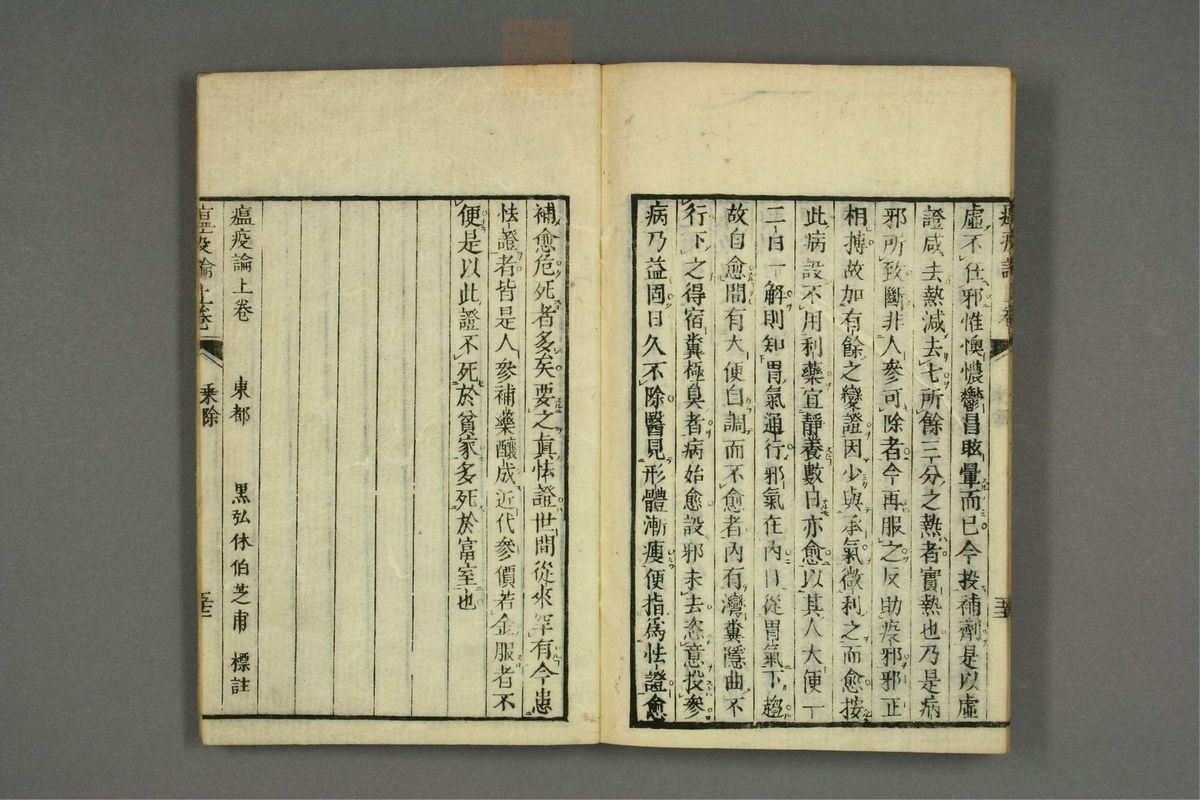 虛不任邪惟懊憹鬱冒眩暈而已今投補劑是以虛
證咸去熱減去七所餘三分之熱者實熱也乃是病
邪所致斷非人參可除者今再服之反助疫邪邪正
相搏故加有餘之變證因少與承氣微利之而愈按
此病設不用利藥宜靜養數日亦愈以其人大便一
二日一解則知胃氣通行邪氣在內日從胃氣下趨
故自愈間有大便自調而不愈者內有灣糞隱曲不
行下之得宿糞極臭者病始愈設邪未去恣意投參
病乃益固日久不除醫見形體漸瘦便指爲怯證愈
補愈危死者多矣要之真怯證世間從來罕有今患
怯證者皆是人參補藥釀成近代參價若金服者不
便是以此證不死於貧家多死於富室也
瘟疫論上卷 東都 黒弘休伯芝甫 標註
瘟疫論上卷 乘除